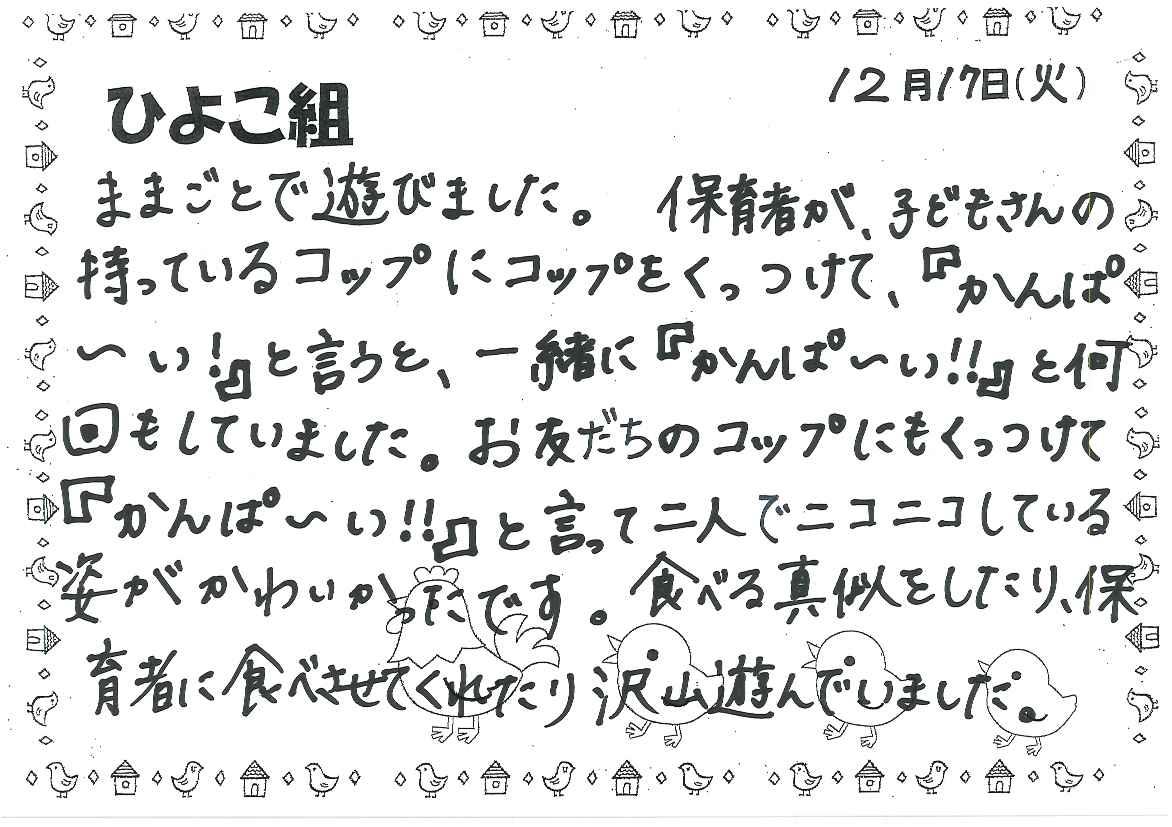 12月17日(火)
ひよこ組
ままごとで遊びました。 保育者が、子どもさんの
持っているコップにコップをくっつけて、『かんぱ
〜い!』と言うと、一緒に『かんぱ〜い!!』と何
回もしていました。お友だちのコップにもくっつけて
『かんぱ〜い!!』と言って二人でニコニコしている
姿がかわいかったです。食べる真似をしたり、保
育者に食べさせてくれたり沢山遊んでいました。